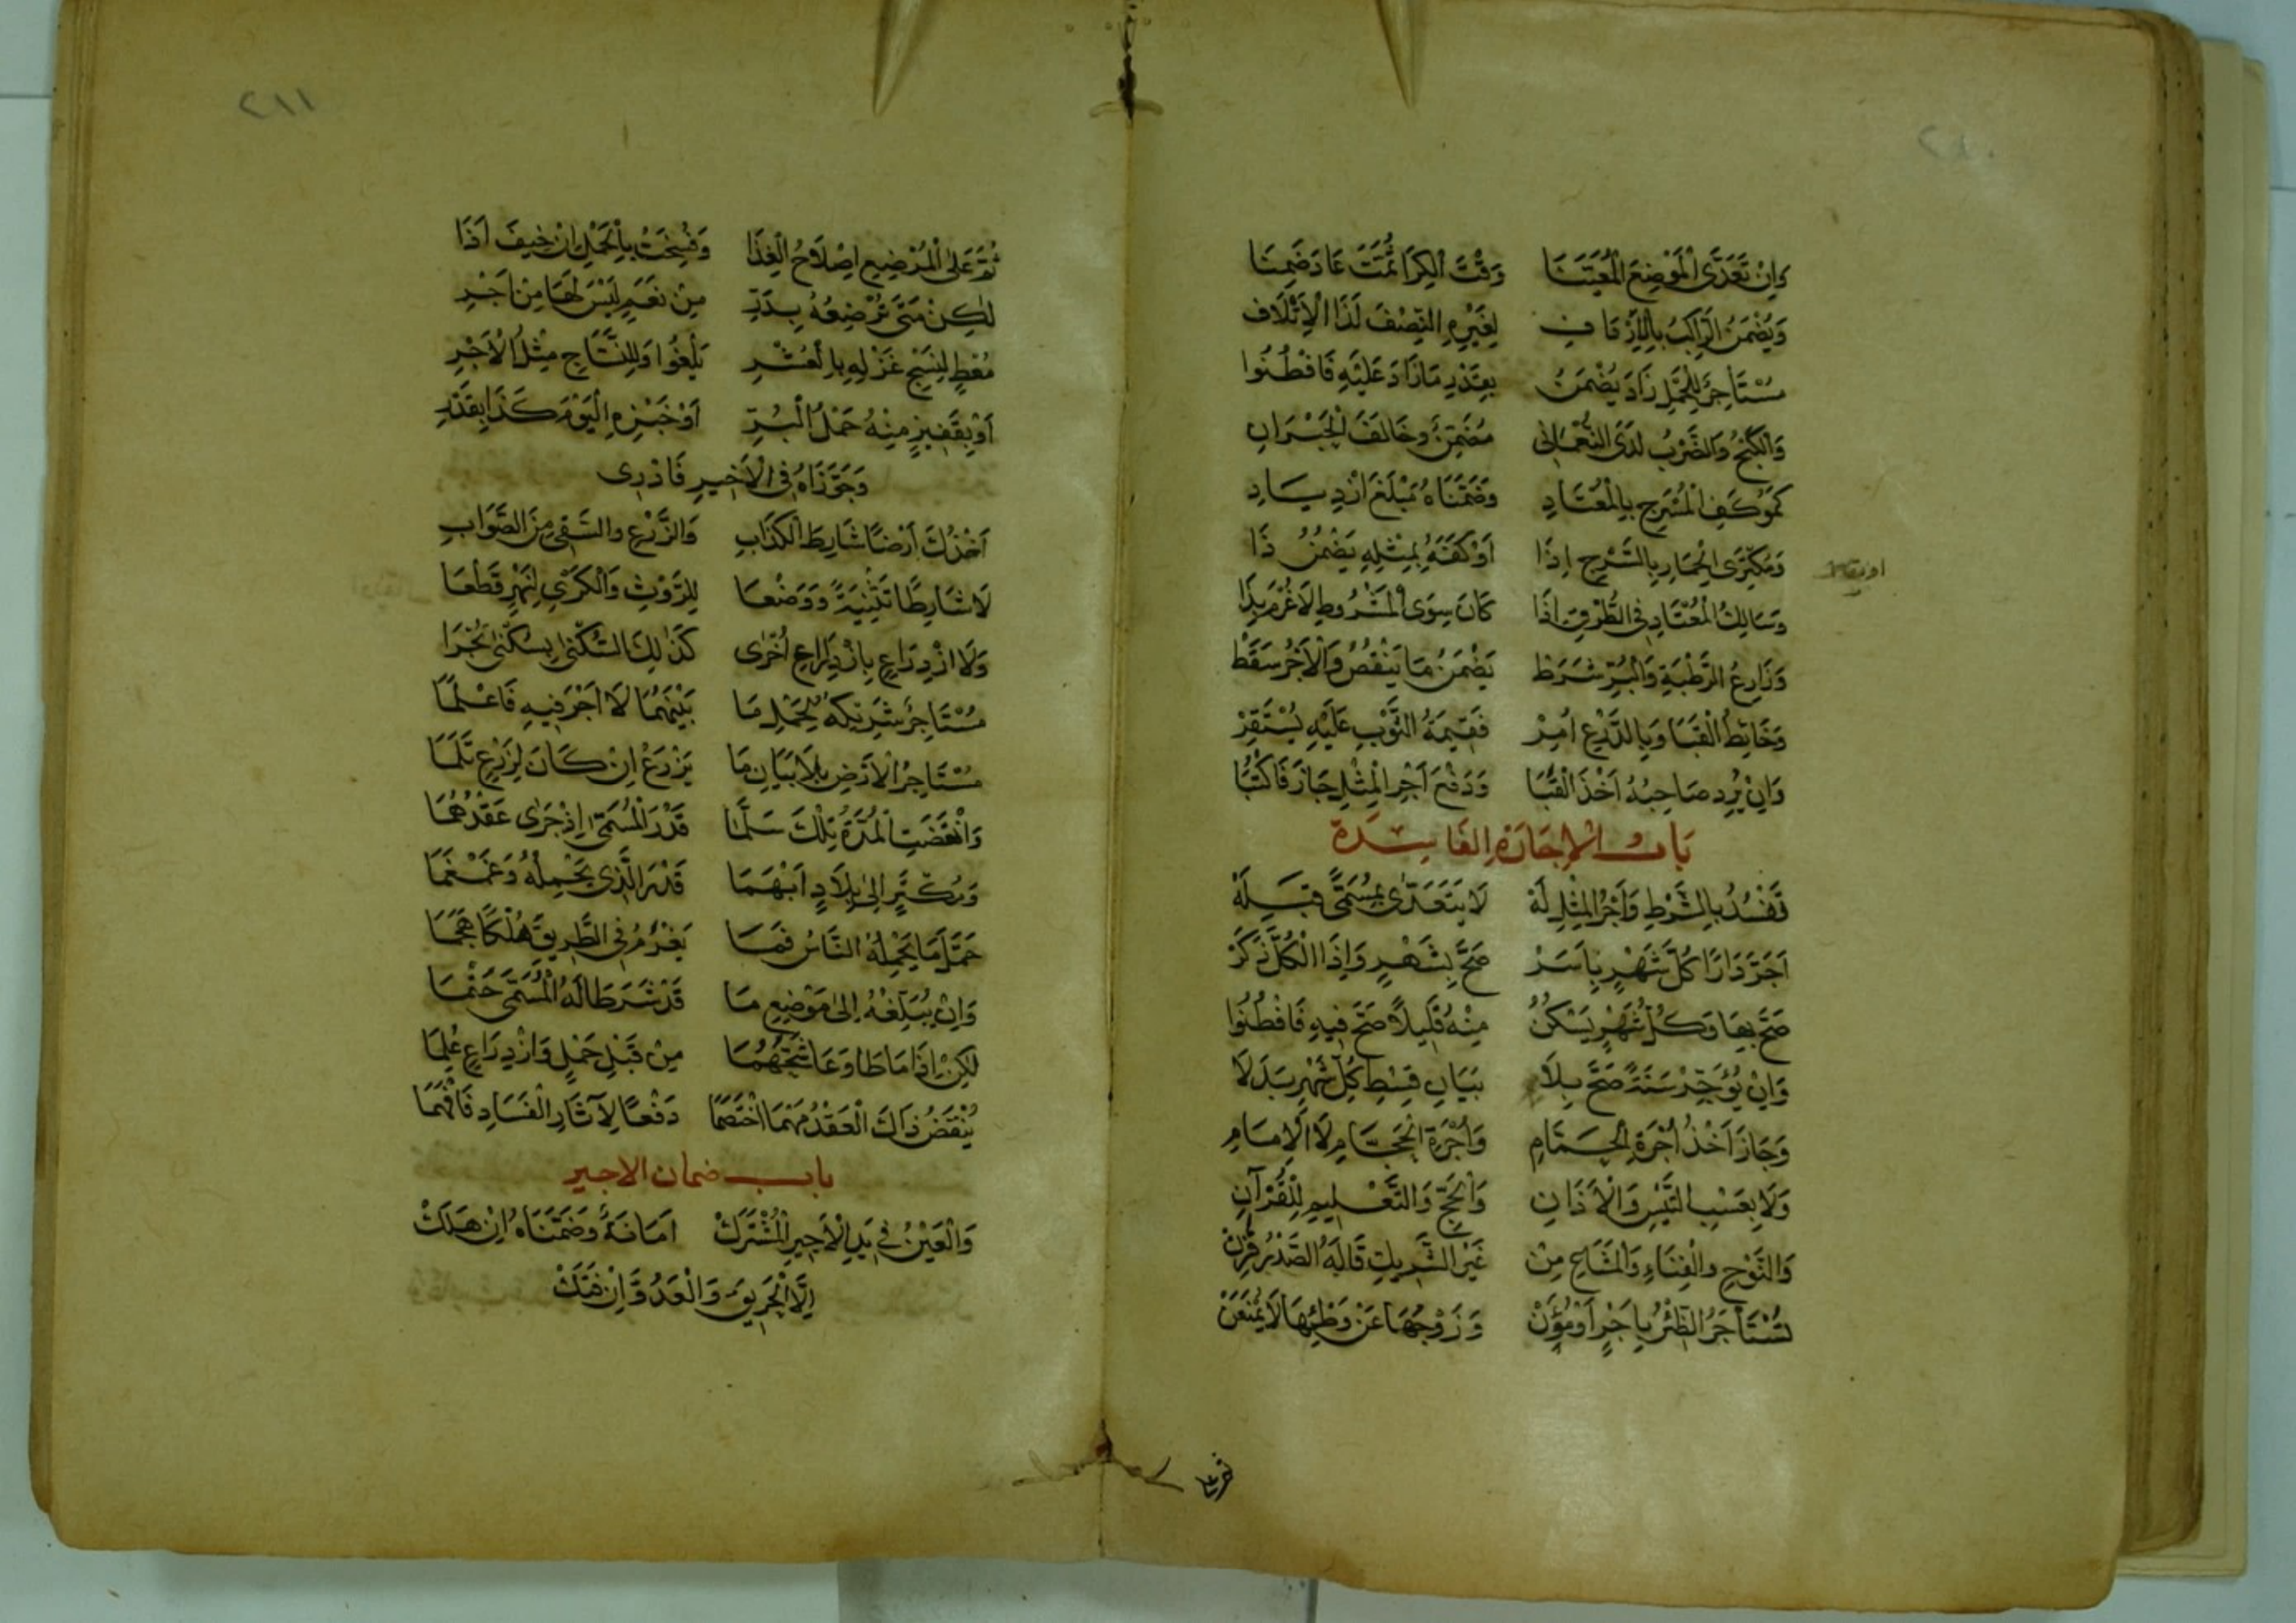 ٢١٠
وَاِنْ تَعَدَّى الْمَوْضِعَ الْمُعَيَّنَا وَقْتَ الْكِرَا ثُمَّتَ عَادَ ضَمِنَا
وَيُضْمَنُ الرَّاكِبُ بِالْاِرْدَافِ لِغَيْرِهِ النِّصْفَ لَذَا الْاِتْلَافِ
مُسْتَأْجِرٌ لِلْحَمْلِ زَادَ يُضْمَنُ بِقَدْرِ مَا زَادَ عَلَيْهِ فَافْطُنُوا
وَالْكَبْحُ وَالضَّرْبُ لَدَى النُّعْمَانِ مُضَمِّنٌ وَخَالَفَ الْحَبْرَانِ
كَمُوكِفِ الْمُسْرَجِ بِالْمُعْتَادِ وَضَمَّنَاهُ مَبْلَغَ ازْدِيَادِ
وَمُكْتَرِي الْحِمَارِ بِالسَّرْجِ اِذَا اَوْكَفَهُ بِمِثْلِهِ يَضْمَنُ ذَا
وَسَالِكُ الْمُعْتَادِ فِي الطُّرْقِ اِذَا كَانَ سِوَى الْمَشْرُوطِ لَا غُرْمَ بِذَا
وَزَارِعُ الرَّطْبَةِ وَالْبُرَّ شَرَطْ يَضْمَنُ مَا يَنْقُصُ وَالْاَجْرُ سَقَطْ
وَخَائِطُ الْقَبَا وَبِالدِّرْعِ اُمِرْ فَقِيمَةُ الثَّوْبِ عَلَيْهِ يُسْتَقِرّْ
وَاِنْ يُرِدْ صَاحِبُهُ اَخْذَ الْقَبَا وَدَفْعَ اَجْرِ الْمِثْلِ جَازَ فَاكْتُبَا
بَابُ الْاِجَارَةِ الْفَاسِدَةِ
تَفْسُدُ بِالشَّرْطِ وَاَجْرُ الْمِثْلِ لَهْ لَا يَتَعَدَّى بِمُسَمًّى قَبِلَهْ
اَجَّرَ دَارًا كُلَّ شَهْرٍ بِاَسَرْ صَحَّ بِشَهْرٍ وَاِذَا الْكُلَّ ذَكَرْ
صَحَّ بِهَا وَكُلُّ شَهْرٍ يَسْكُنُ مِنْهُ قَلِيلًا صَحَّ فِيهِ فَافْطُنُوا
وَاِنْ يُؤَجِّرْ سَنَةً صَحَّ بِلَا بَيَانِ قِسْطِ كُلِّ شَهْرٍ بَدَلَا
وَجَازَ اَخْذُ اُجْرَةِ الْحَمَّامِ وَاُجْرَةِ الْحَجَّامِ لَا الْاِمَامِ
وَلَا بِعَسْبِ التَّيْسِ وَالْاَذَانِ وَالْحَجِّ وَالتَّعْلِيمِ لِلْقُرْآنِ
وَالنَّوْحِ وَالْغِنَاءِ وَالْمَشَاعِ مِنْ غَيْرِ الشَّرِيكِ قَالَهُ الصَّدْرُ
تُسْتَأْجَرُ الظِّئْرُ بِاَجْرٍ اَوْ مُؤَنْ وَزَوْجُهَا عَنْ وَطْئِهَا لَا يُمْنَعَنْ
٢١١
ثُمَّ عَلَى الْمُرْضِعِ اِصْلَاحُ الْغِذَا وَفُسِخَتْ بِالْحَمْلِ اِنْ خِيفَ اَذَا
لٰكِنْ مَتَى تُرْضِعُهُ بِدَرِّ مِنْ نَعَمٍ لَيْسَ لَهَا مِنْ اَجْرِ
مُعْطٍ لِنَسْجِ غَزْلِهِ بِالْعُشْرِ يَلْغُوا وَلِلنَّسَّاجِ مِثْلُ الْاَجْرِ
اَوْ بِقَفِيزٍ مِنْهُ حَمْلُ الْبُرِّ اَوْ خَبْزِهِ الْيَوْمَ كَذَا بِقَدْرِ
وَجَوَّزَاهُ فِي الْاَخِيرِ فَادْرِى
اَخْذُكَ اَرْضًا شَارِطَ الْكِرَابِ وَالزَّرْعِ وَالسَّقْيِ مِنَ الصَّوَابِ
لَا شَارِطًا تَثْنِيَةً وَوَضْعَا لِلرَّوْثِ وَالْكَرْيِ لِنَهْرٍ قَطْعَا
وَلَا ازْدِرَاعٍ بِازْدِرَاعِ اُخْرٰى كَذٰلِكَ السُّكْنٰى بِسُكْنٰى تُجْرَا
مُسْتَأْجِرٌ شَرِيكَهُ لِحَمْلِ مَا بَيْنَهُمَا لَا اَجْرَ فِيهِ فَاعْلَمَا
مُسْتَأْجِرُ الْاَرْضِ بِلَا بَيَانِ مَا يَزْرَعْ اِنْ كَانَ لِزَرْعٍ تَلَمَا
وَانْقَضَتِ الْمُدَّةُ تِلْكَ سَلَّمَا قَدْرَ الْمُسَمَّى اِذْ جَرٰى عَقْدُهُمَا
وَمُكْتَرٍ اِلٰى بِلَادٍ اَبْهَمَا قَدْرَ الَّذِي يَحْمِلُهُ وَغَمْغَمَا
حَمَّلَ مَا يَحْمِلُهُ النَّاسُ فَمَا يَغْرَمُ فِي الطَّرِيقِ هُلْكًا هَجَمَا
وَاِنْ يُبَلِّغْهُ اِلٰى مَوْضِعِ مَا قَدْ شَرَطَا لَهُ الْمُسَمَّى حَتْمَا
لٰكِنْ اِذَا مَا طَاوَعَا شُحَّهُمَا مِنْ قَبْلِ حَمْلٍ وَازْدِرَاعٍ عُلِمَا
يُنْقَضُ ذَاكَ الْعَقْدُ مَهْمَا اخْتَصَمَا دَفْعًا لِآثَارِ الْفَسَادِ فَافْهَمَا
باب ضمان الاجير
وَالْعَيْنُ فِي يَدِ الْاَجِيرِ الْمُشْتَرَكْ اَمَانَةٌ وَضَمَّنَاهُ اِنْ هَلَكْ
اِلَّا الْحَرِيقَ وَالْعَدُوَّ اِنْ فَتَكْ